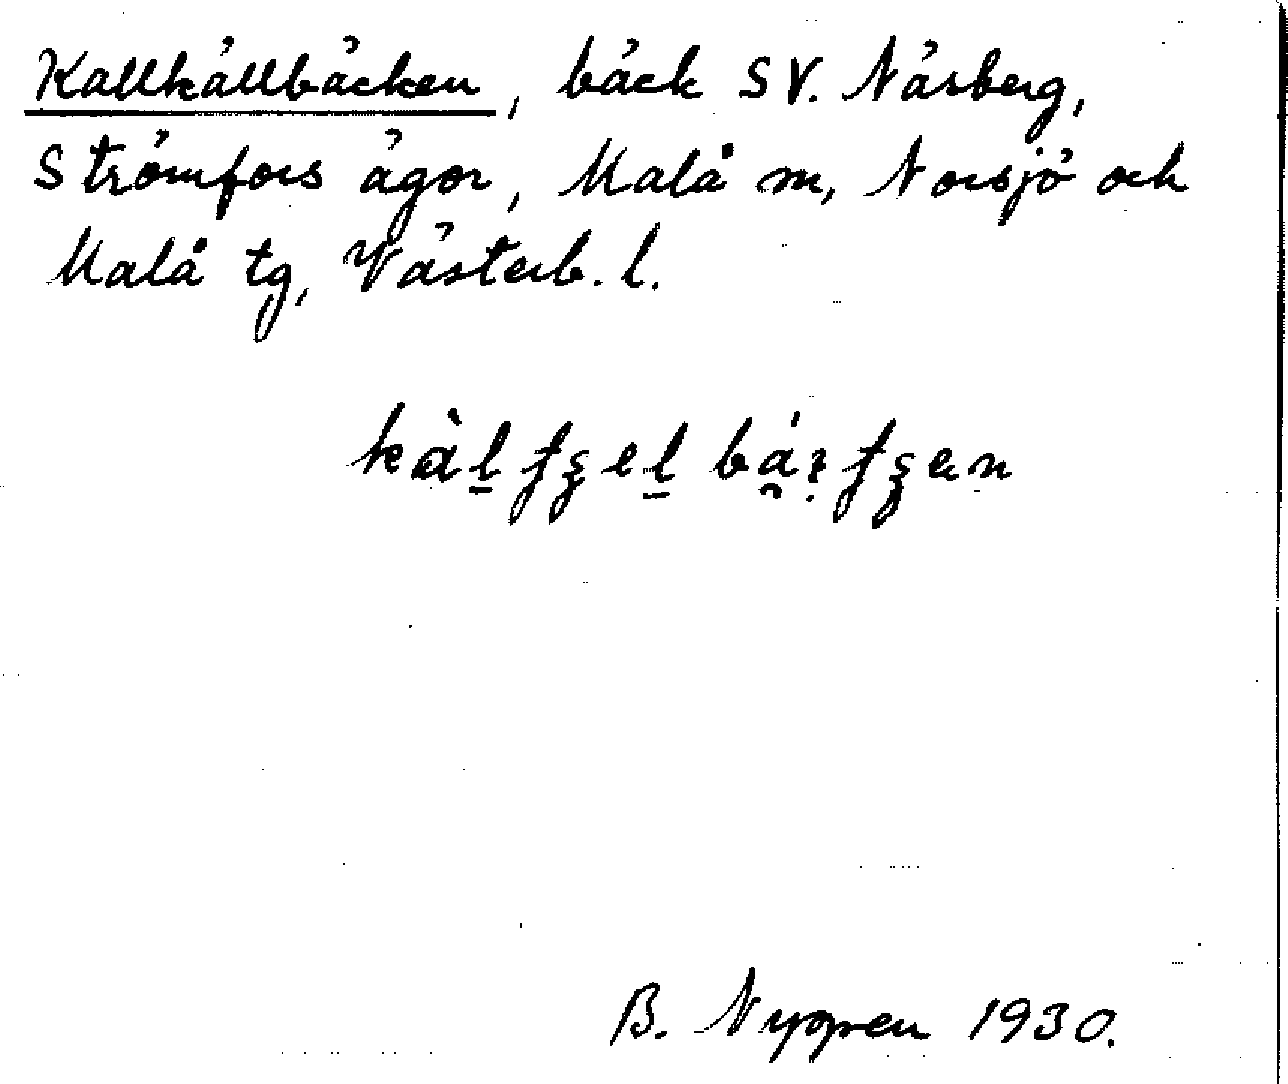 Kallkällbäcken, bäck SV. Näsberg,
Strömfors ägor, Malå sn, Norsjö och
Malå tg, Västerb. l.
B. Nygren 1930.